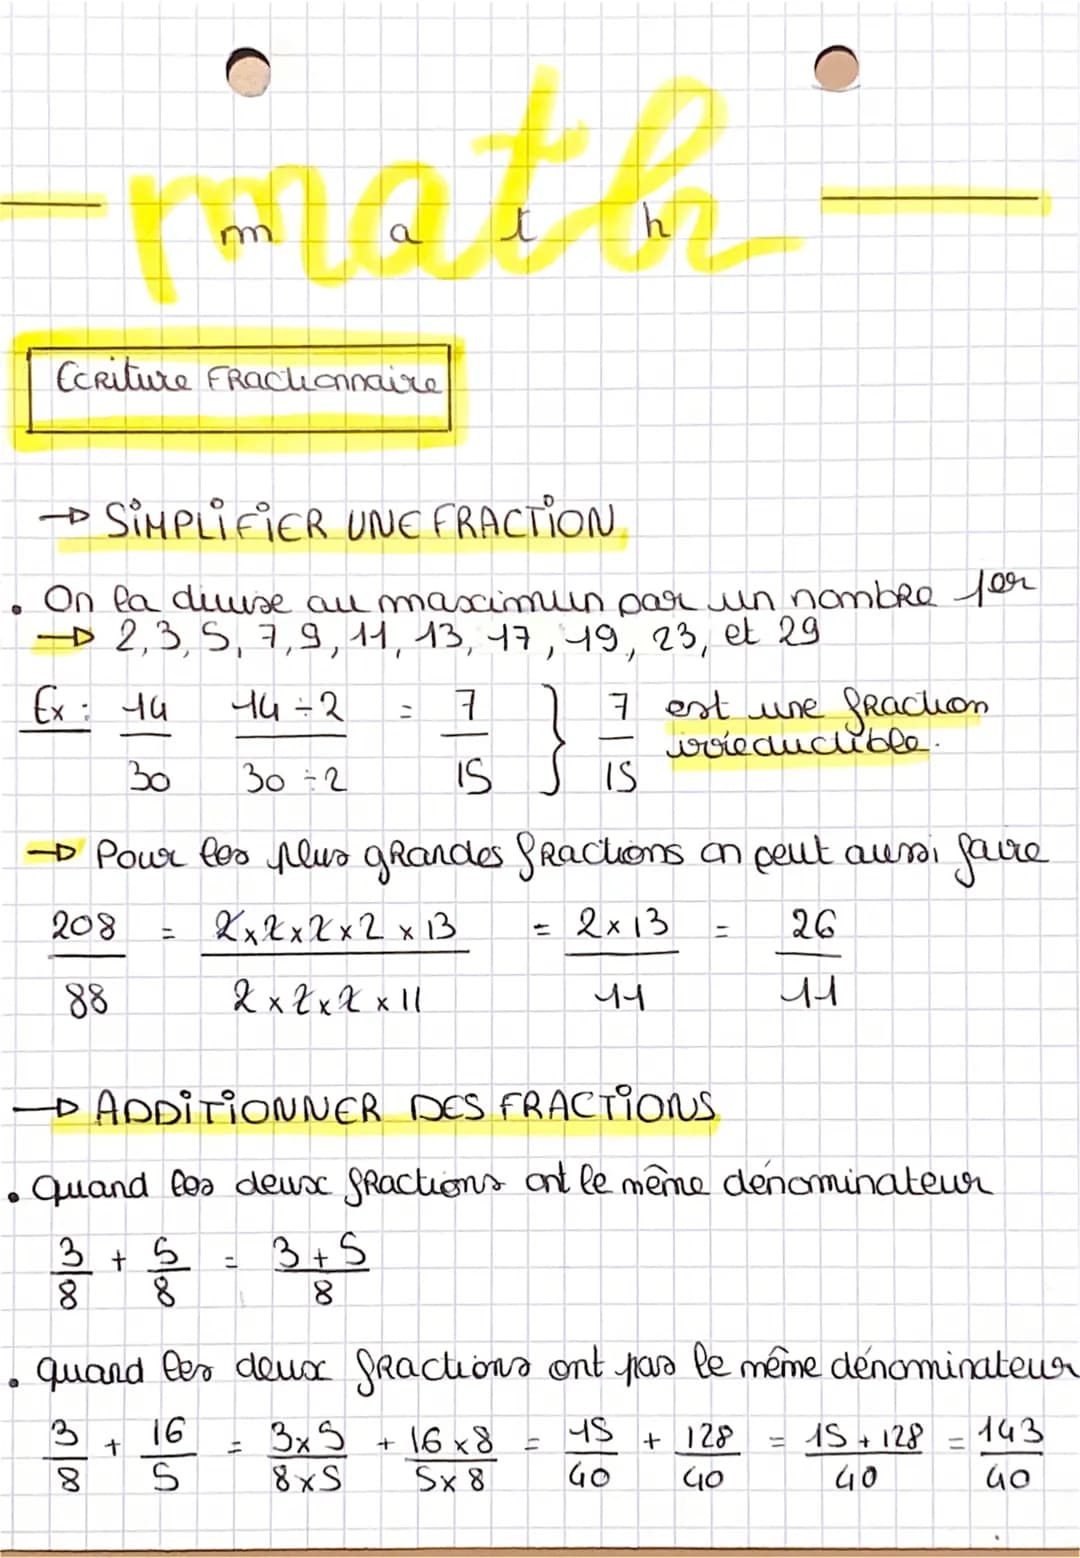 math
m a t h
Ecriture Fractionnaire
→ SIMPLIFIER UNE FRACTION
• On la divise au maximun par un nombre 1er
→ 2, 3, 5, 7, 9, 11, 13, 17, 19, 23, et 29
Ex : 14/30 14÷2/30÷2 = 7/15 } 7/15 est une fraction
irréductible.
→ Pour les plus grandes fractions on peut aussi faire
208/88 = 2×2×2×2×13/2×2×2×11 = 2×13/11 = 26/11
→ ADDITIONNER DES FRACTIONS
• quand les deux fractions ont le même dénominateur
3/8 + 5/8 = 3+5/8
• quand les deux fractions ont pas le même dénominateur
3/8 + 16/5 = 3×5/8×5 + 16×8/5×8 = 15/40 + 128/40 = 15+128/40 = 143/40